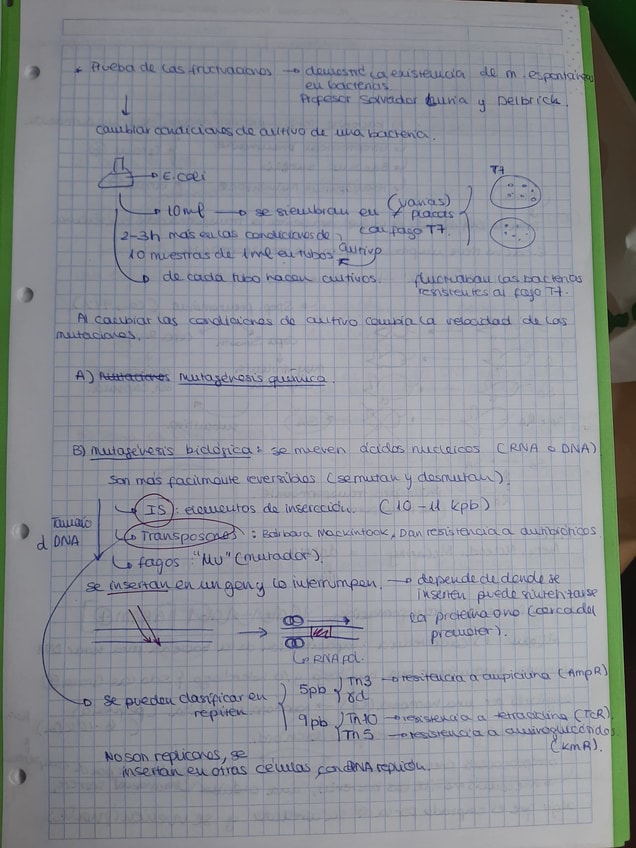 * Prueba de las fluctuaciones → demostró la existencia de m. espontáneas
en bacterias
Profesor Salvador Luria y Delbrick.
cambiar condiciones de cultivo de una bacteria.
→ E.coli
T7
→ 10ml → se siembran en (varias) placas
2-3h más en las condiciones de cultivo, con fago T7.
10 muestras de 1ml en tubos
→ de cada tubo hacen cultivos.
fluctuaban las bacterias
resistentes al fago T7.
Al cambiar las condiciones de cultivo cambia la velocidad de las
mutaciones.
A) Mutaciones Mutagénesis química.
B) Mutagénesis biológica: se mueven ácidos nucleicos (RNA o DNA)
Son más facilmente reversibles (se mutan y desmutan).
→ IS: elementos de inserción. (10-11 kpb)
Tamaño
d DNA
→ Transposones: Bárbara Mackintock, Dan resistencia a antibióticos
→ fagos: "MU" (mutador).
se insertan en un gen y lo interrumpen. → depende de donde se
inserten puede sintetizarse
la proteína o no (cerca del
promoter).
→ RNA pol.
→ se pueden clasificar en
repiten
5pb Tn3 → resistencia a ampicilina (AmpR)
γd
9pb Tn10 → resistencia a tetraciclina (TcR).
Tn5 → resistencia a aminoglucósidos
(KmR).
No son replicones, se
insertan en otras células con DNA replicón.